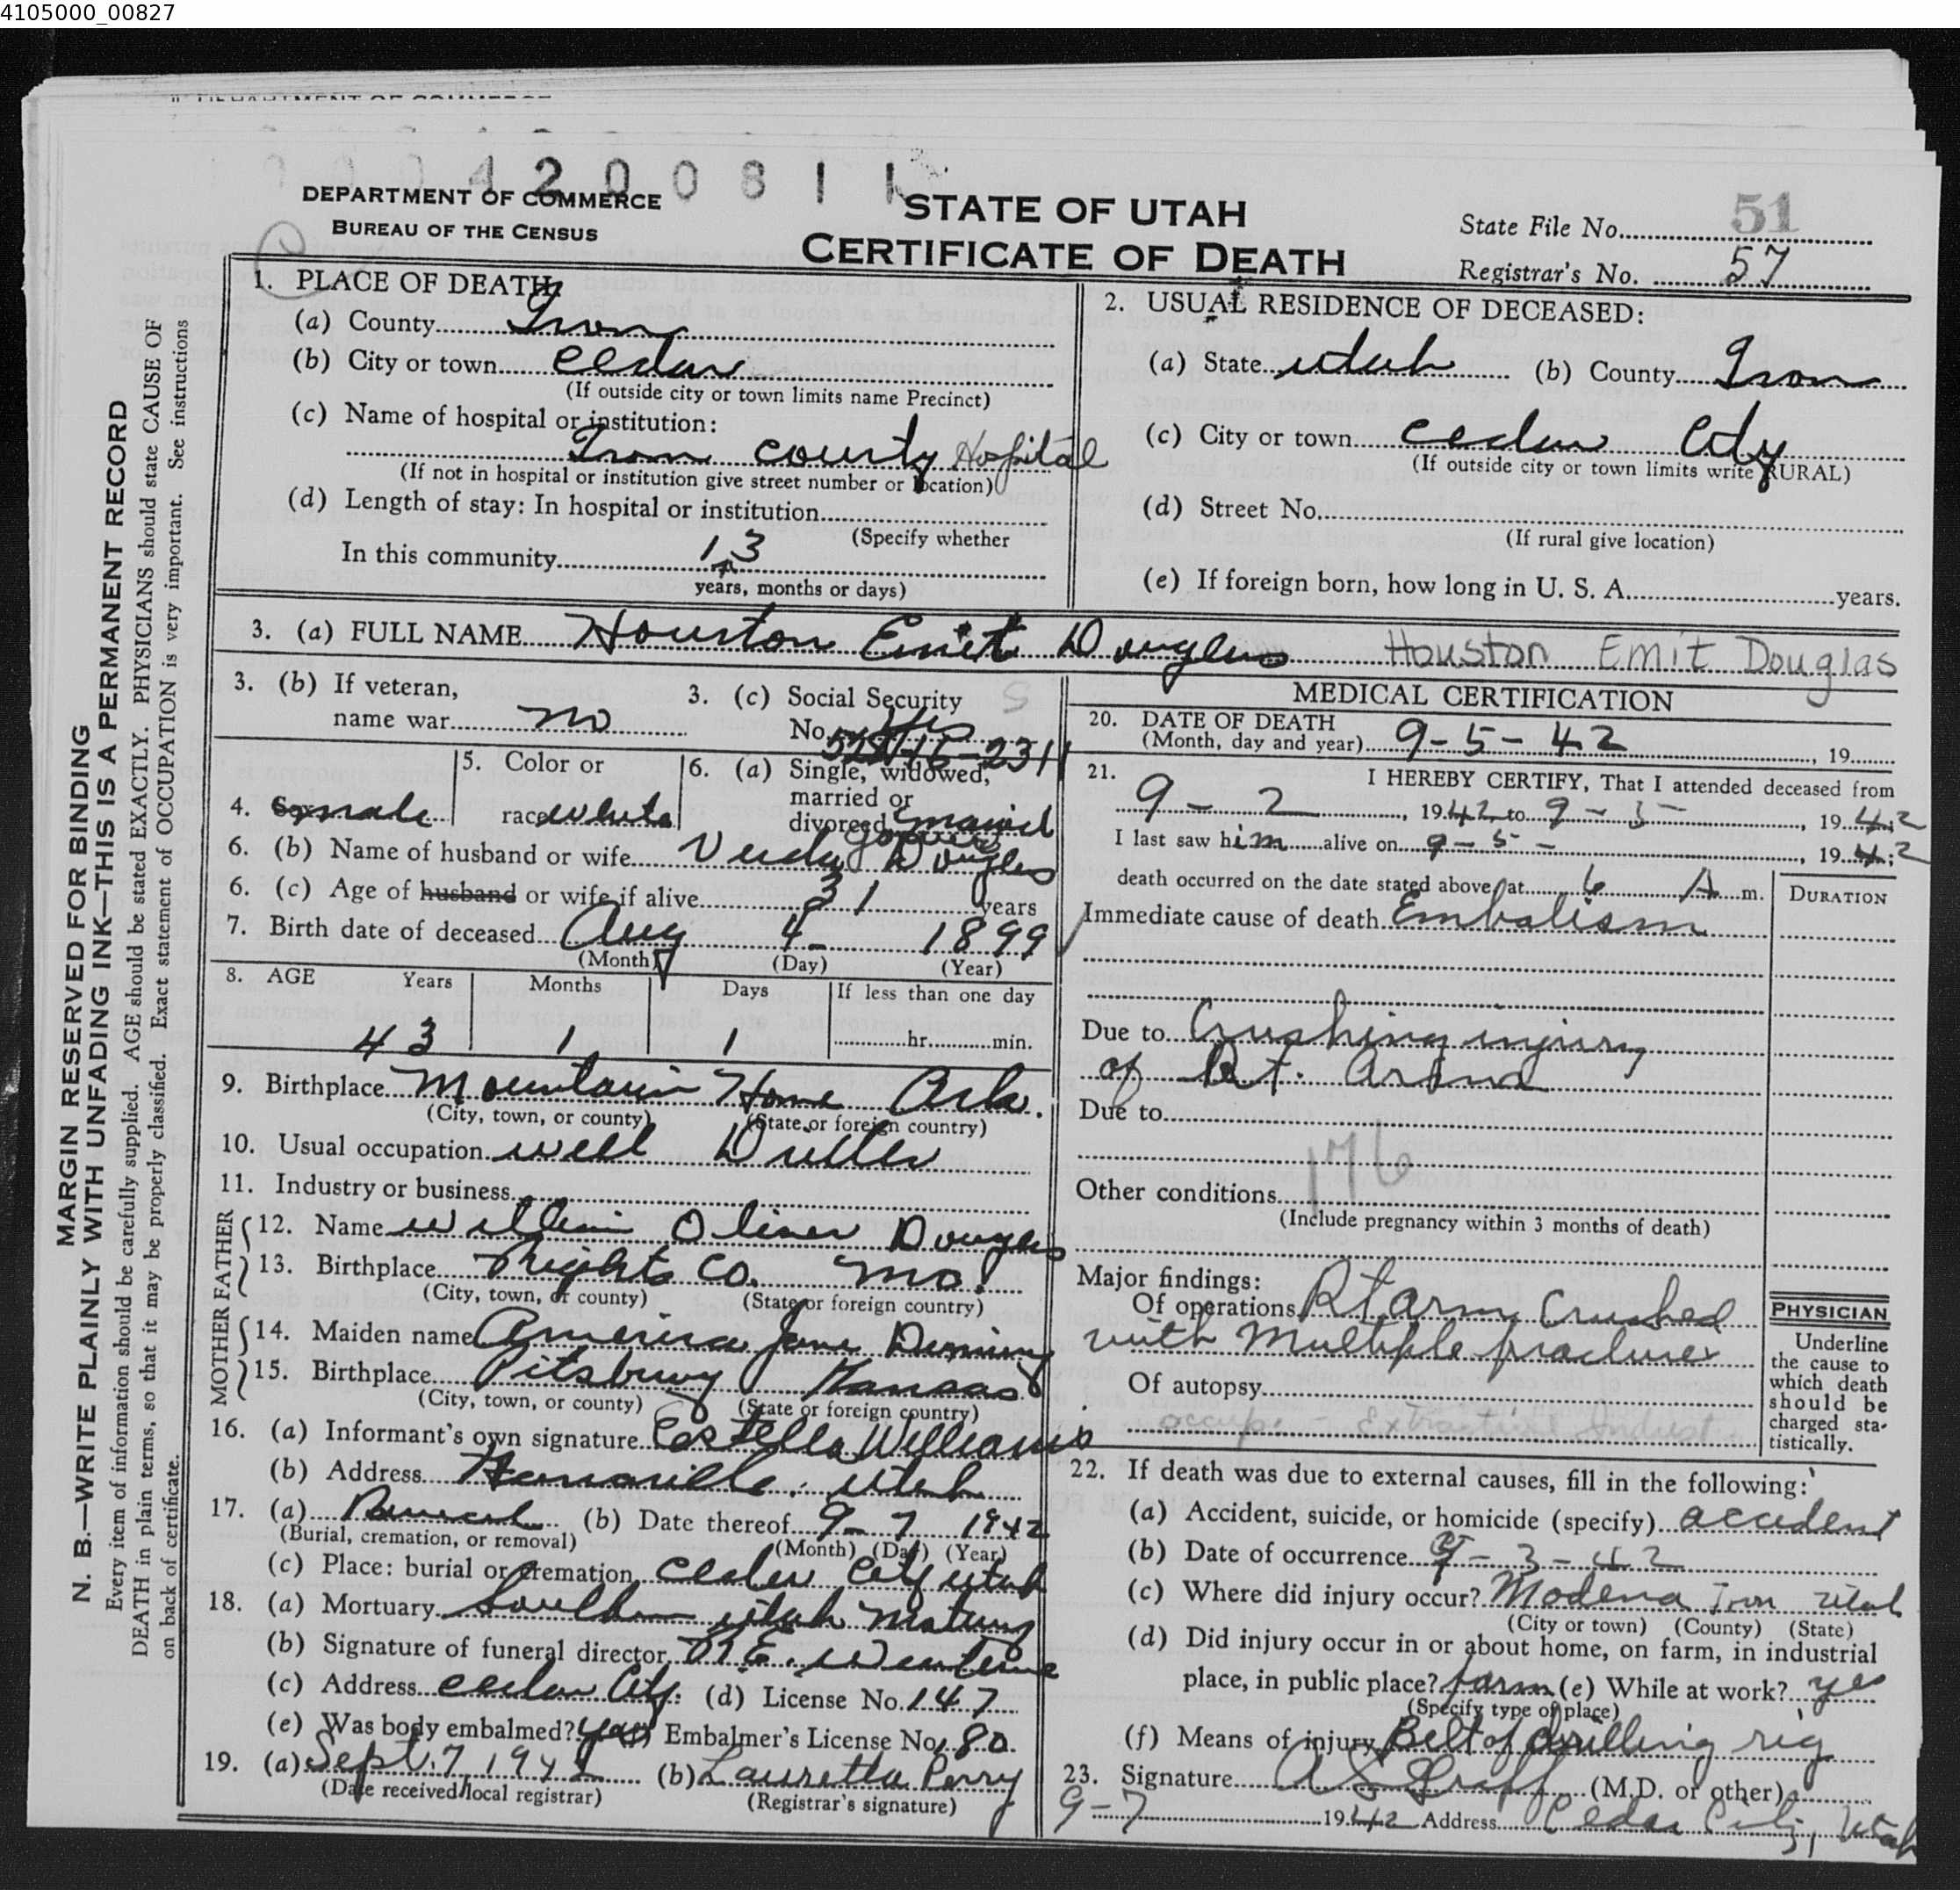 4105000_00827
4 2 0 0 8 1 1
DEPARTMENT OF COMMERCE
BUREAU OF THE CENSUS
STATE OF UTAH
CERTIFICATE OF DEATH
State File No. 51
Registrar's No. 57
MARGIN RESERVED FOR BINDING
N. B.—WRITE PLAINLY WITH UNFADING INK—THIS IS A PERMANENT RECORD
Every item of information should be carefully supplied. AGE should be stated EXACTLY. PHYSICIANS should state CAUSE OF
DEATH in plain terms, so that it may be properly classified. Exact statement of OCCUPATION is very important. See instructions
on back of certificate.
1. PLACE OF DEATH:
(a) County Iron
(b) City or town Cedar
(If outside city or town limits name Precinct)
(c) Name of hospital or institution:
Iron County Hospital
(If not in hospital or institution give street number or location)
(d) Length of stay: In hospital or institution
(Specify whether
In this community 13
years, months or days)
2. USUAL RESIDENCE OF DECEASED:
(a) State Utah (b) County Iron
(c) City or town Cedar City
(If outside city or town limits write RURAL)
(d) Street No.
(If rural give location)
(e) If foreign born, how long in U. S. A. years.
3. (a) FULL NAME Houston Emit Douglas Houston Emit Douglas
3. (b) If veteran,
name war no
3. (c) Social Security
No. yes
4. Sex male
5. Color or
race white
6. (a) Single, widowed,
married or
divorced married
6. (b) Name of husband or wife Douglas
6. (c) Age of husband or wife if alive 31 years
7. Birth date of deceased Aug 4 1899
(Month) (Day) (Year)
8. AGE Years Months Days If less than one day
43 1 1 hr. min.
9. Birthplace Mountain Home Ark.
(City, town, or county) (State or foreign country)
10. Usual occupation well Driller
11. Industry or business
FATHER
12. Name William Oliver Douglas
13. Birthplace Wright Co. Mo.
(City, town, or county) (State or foreign country)
MOTHER
14. Maiden name America Jane
15. Birthplace Pitsburg Kansas
(City, town, or county) (State or foreign country)
16. (a) Informant's own signature Estella Williams
(b) Address Utah
17. (a) Burial (b) Date thereof 9 7 1942
(Burial, cremation, or removal) (Month) (Day) (Year)
(c) Place: burial or cremation Cedar City Utah
18. (a) Mortuary Southern Utah Mortuary
(b) Signature of funeral director
(c) Address Cedar City. (d) License No. 147
(e) Was body embalmed? yes (f) Embalmer's License No. 80
19. (a) Sept. 7, 1942 (b) Lauretta Perry
(Date received local registrar) (Registrar's signature)
MEDICAL CERTIFICATION
20. DATE OF DEATH
(Month, day and year) 9-5-42, 19
21. I HEREBY CERTIFY, That I attended deceased from
9-2, 1942 to 9-5-, 1942;
I last saw him alive on 9-5-, 1942;
death occurred on the date stated above, at 6 A m.
DURATION
Immediate cause of death Embalism
Due to Crushing injury
of Rt. Arm
Due to
176
Other conditions
(Include pregnancy within 3 months of death)
Major findings:
Of operations Rt arm Crushed
with Multiple fractures
Of autopsy
occup. - Extractive Indust.
PHYSICIAN
Underline
the cause to
which death
should be
charged sta-
tistically.
22. If death was due to external causes, fill in the following:
(a) Accident, suicide, or homicide (specify) accident
(b) Date of occurrence 9-3-42
(c) Where did injury occur? Modena Iron Utah
(City or town) (County) (State)
(d) Did injury occur in or about home, on farm, in industrial
place, in public place? farm (e) While at work? yes
(Specify type of place)
(f) Means of injury Belt of drilling rig
23. Signature (M.D. or other)
9-7 1942 Address Cedar City, Utah